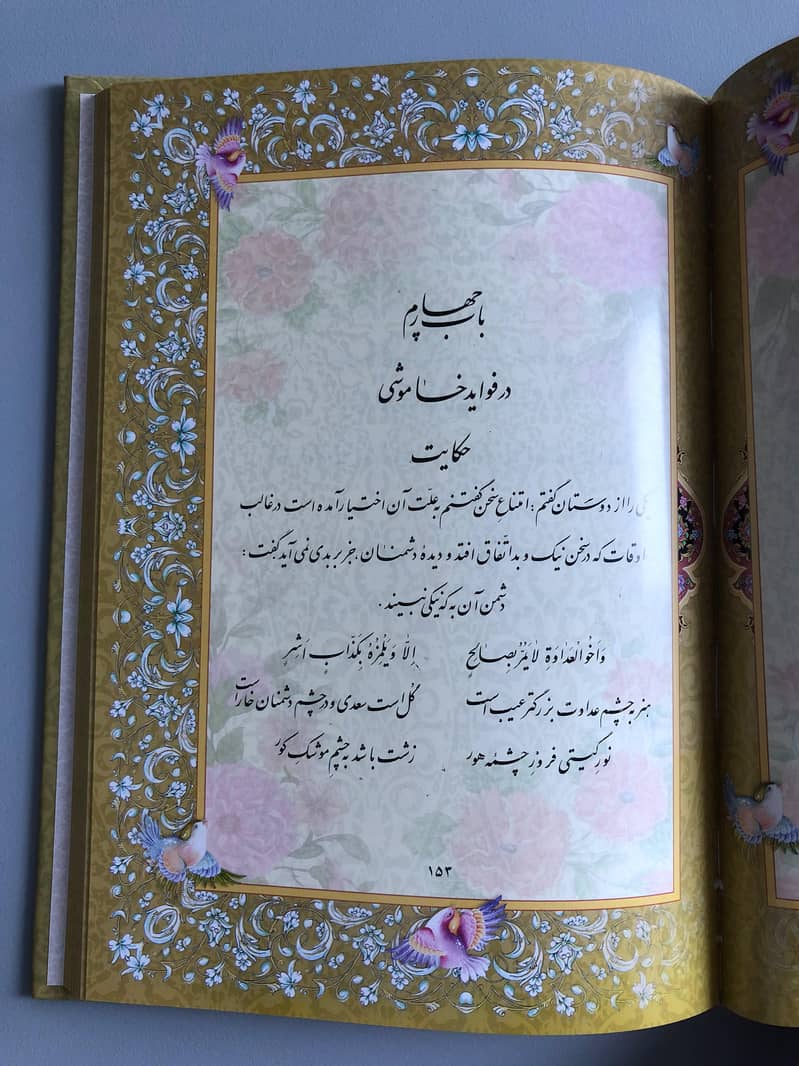 باب چهارم
در فواید خاموشی
حکایت
یکی را از دوستان گفتم: امتناعِ سخن گفتنم به علّت آن اختیار آمده است در غالب
اوقات که در سخن نیک و بد اتّفاق افتد و دیدهٔ دشمنان، جز بر بدی نمی‌آید گفت:
دشمن آن به که نیکی نبیند.
وَاَخُو الْعَداوَةِ لا یَمُرُّ بِصالِحٍ اِلاّ وَ یَلْمِزُهُ بِکَذّابٍ اَشِرٍ
هنر به چشم عداوت بزرگتر عیب است گل است سعدی و در چشم دشمنان خار است
نور گیتی فروز چشمهٔ هور زشت باشد به چشمِ موشک کور
۱۵۳